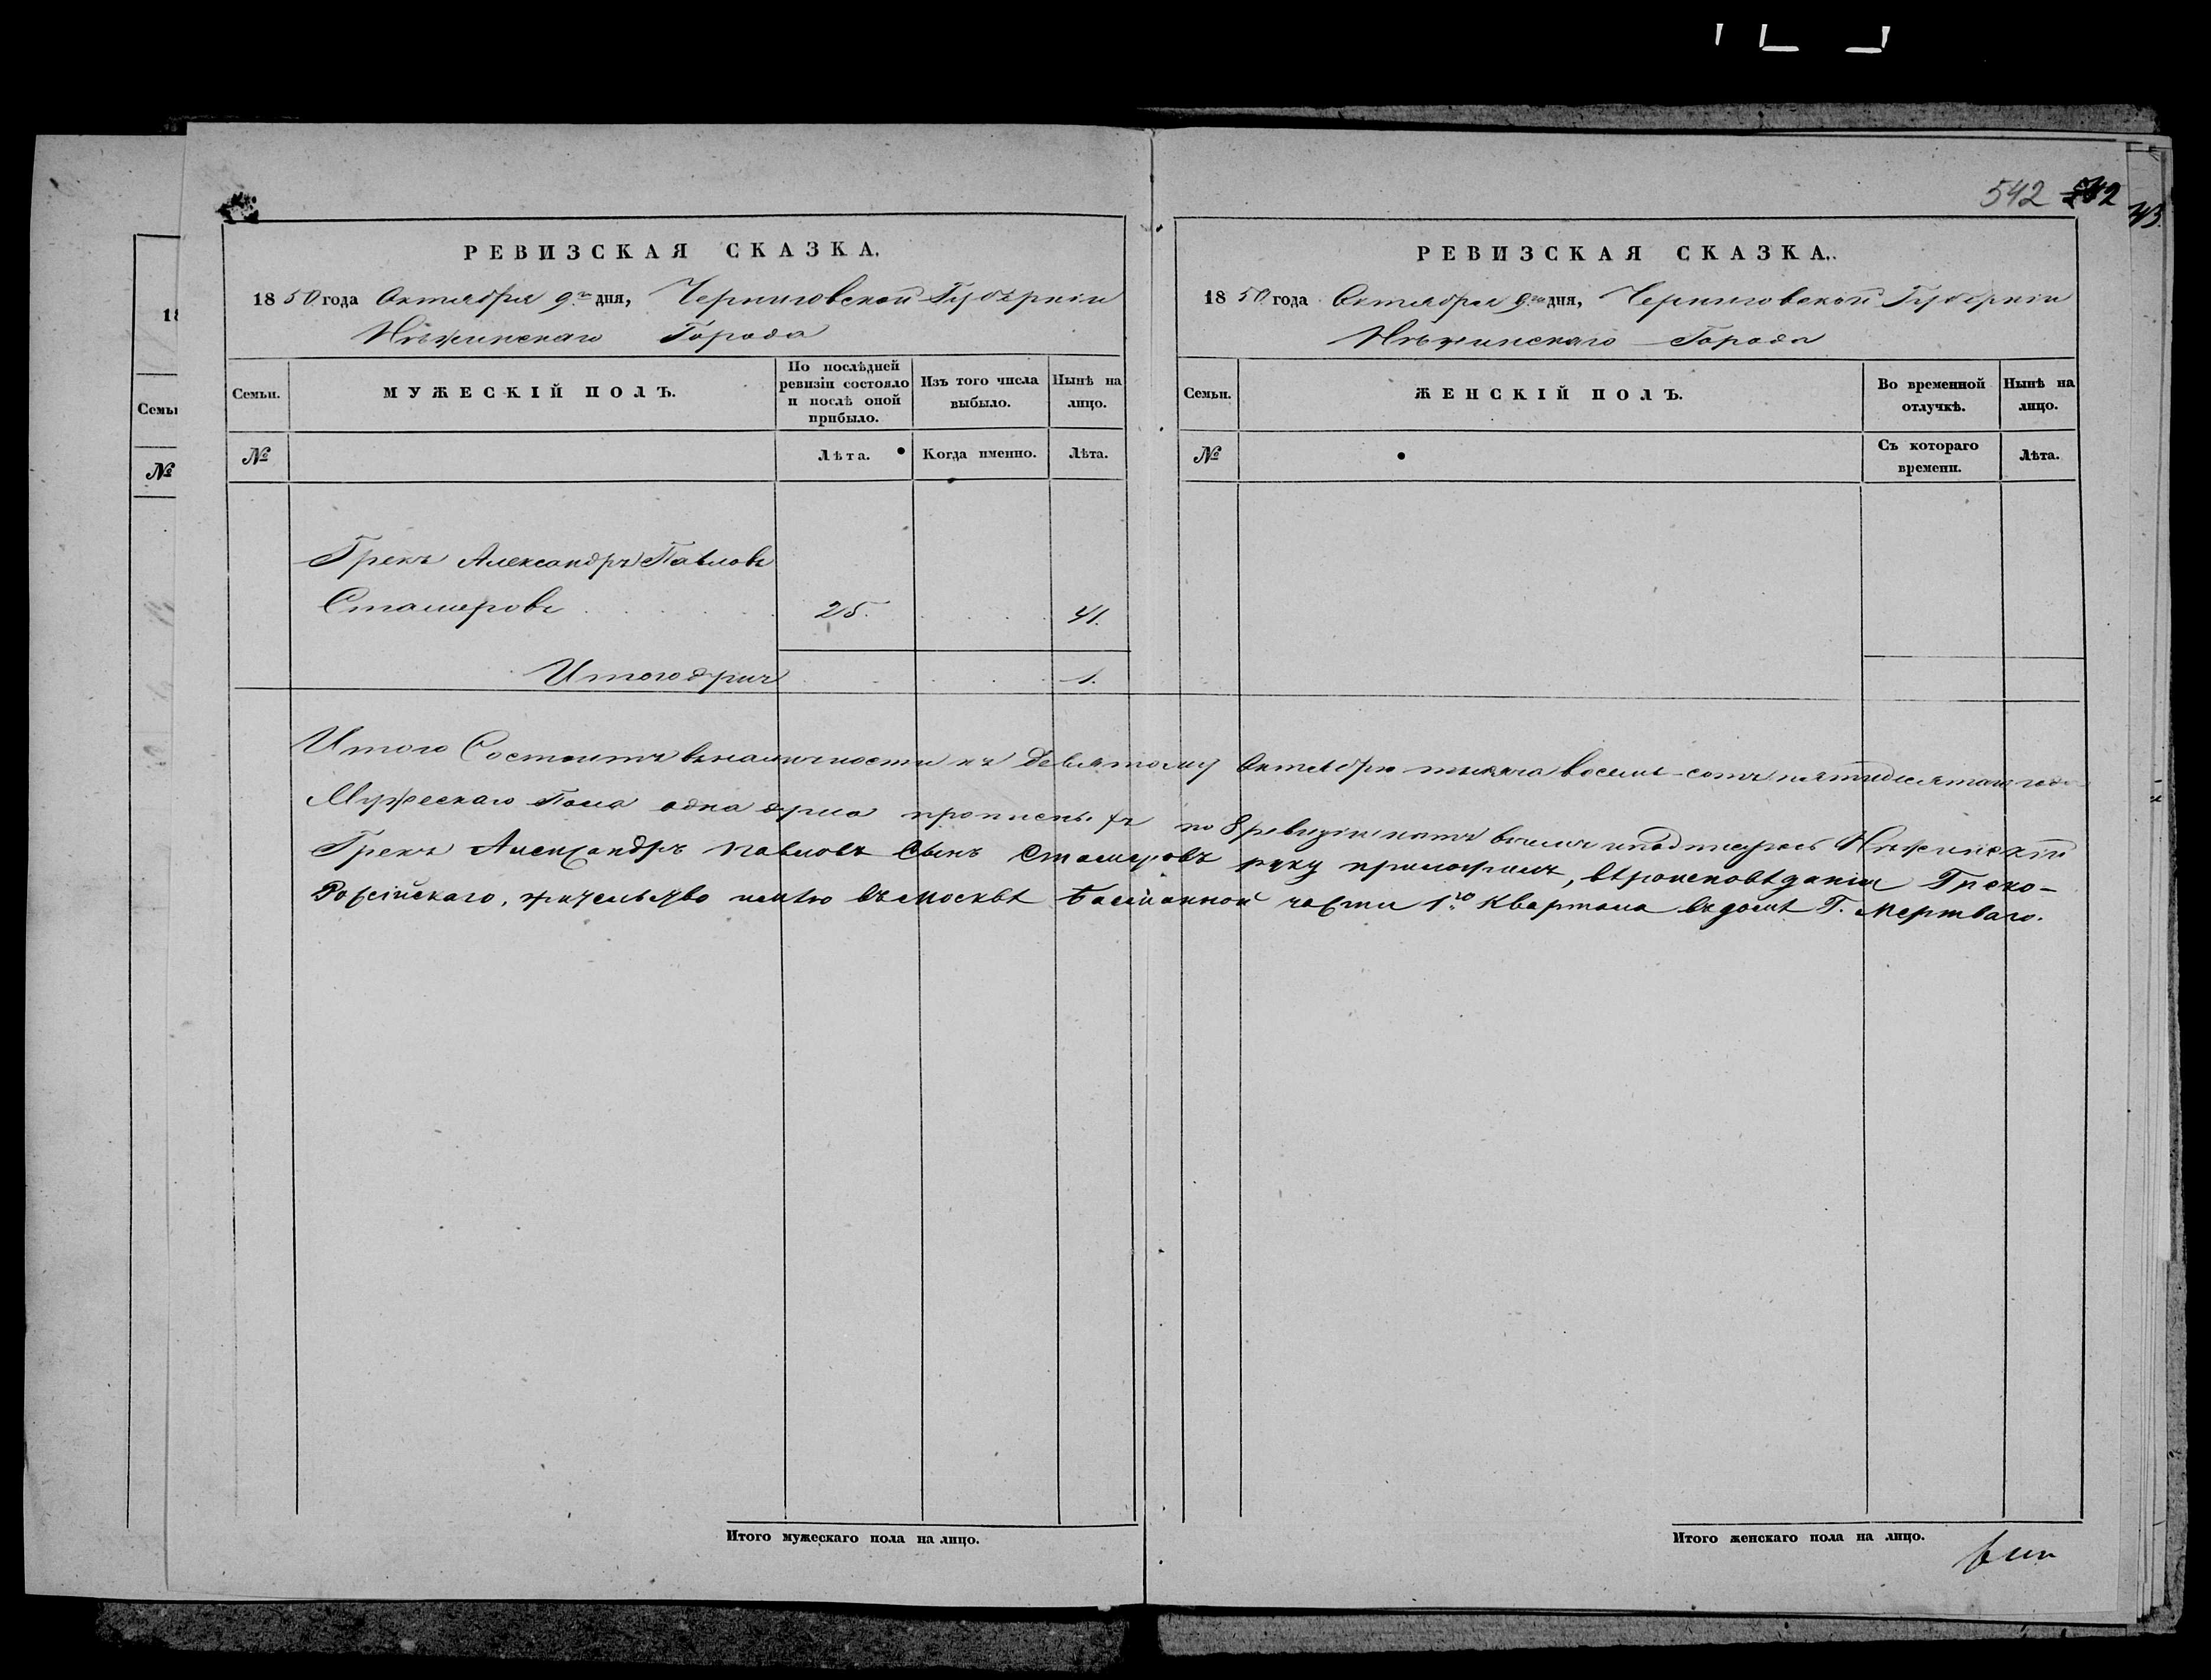 542 542
43.
РЕВИЗСКАЯ СКАЗКА.
1850 года Октября 9го дня, Черниговской Губерніи
Нѣжинскаго Города
Семьи.
МУЖЕСКІЙ ПОЛЪ.
По послѣдней ревизіи состояло и послѣ оной прибыло.
Изъ того числа выбыло.
Нынѣ на лицо.
№
Лѣта.
Когда именно.
Лѣта.
Грекъ Александръ Павловъ
Стамеровъ 25. 41.
Итого душъ 1.
РЕВИЗСКАЯ СКАЗКА.
1850 года Октября 9го дня, Черниговской Губерніи
Нѣжинскаго Города
Семьи.
ЖЕНСКІЙ ПОЛЪ.
Во временной отлучкѣ.
Нынѣ на лицо.
№
Съ котораго времени.
Лѣта.
Итого Состоитъ въ наличности къ девятому Октября тысяча восемь-сотъ пятидесятаго года
Мужескаго Пола одна душа по 8 ревизіи Нѣжинскій
Грекъ Александръ Павловъ Сынъ Стамеровъ руку приложилъ, вѣроисповѣданія Греко-
Россійскаго, жительство имѣю въ Москвѣ Басманной части 1го Квартала въ домѣ Г. Мертваго.
Итого мужескаго пола на лицо.
Итого женскаго пола на лицо.
18
Семьи
№